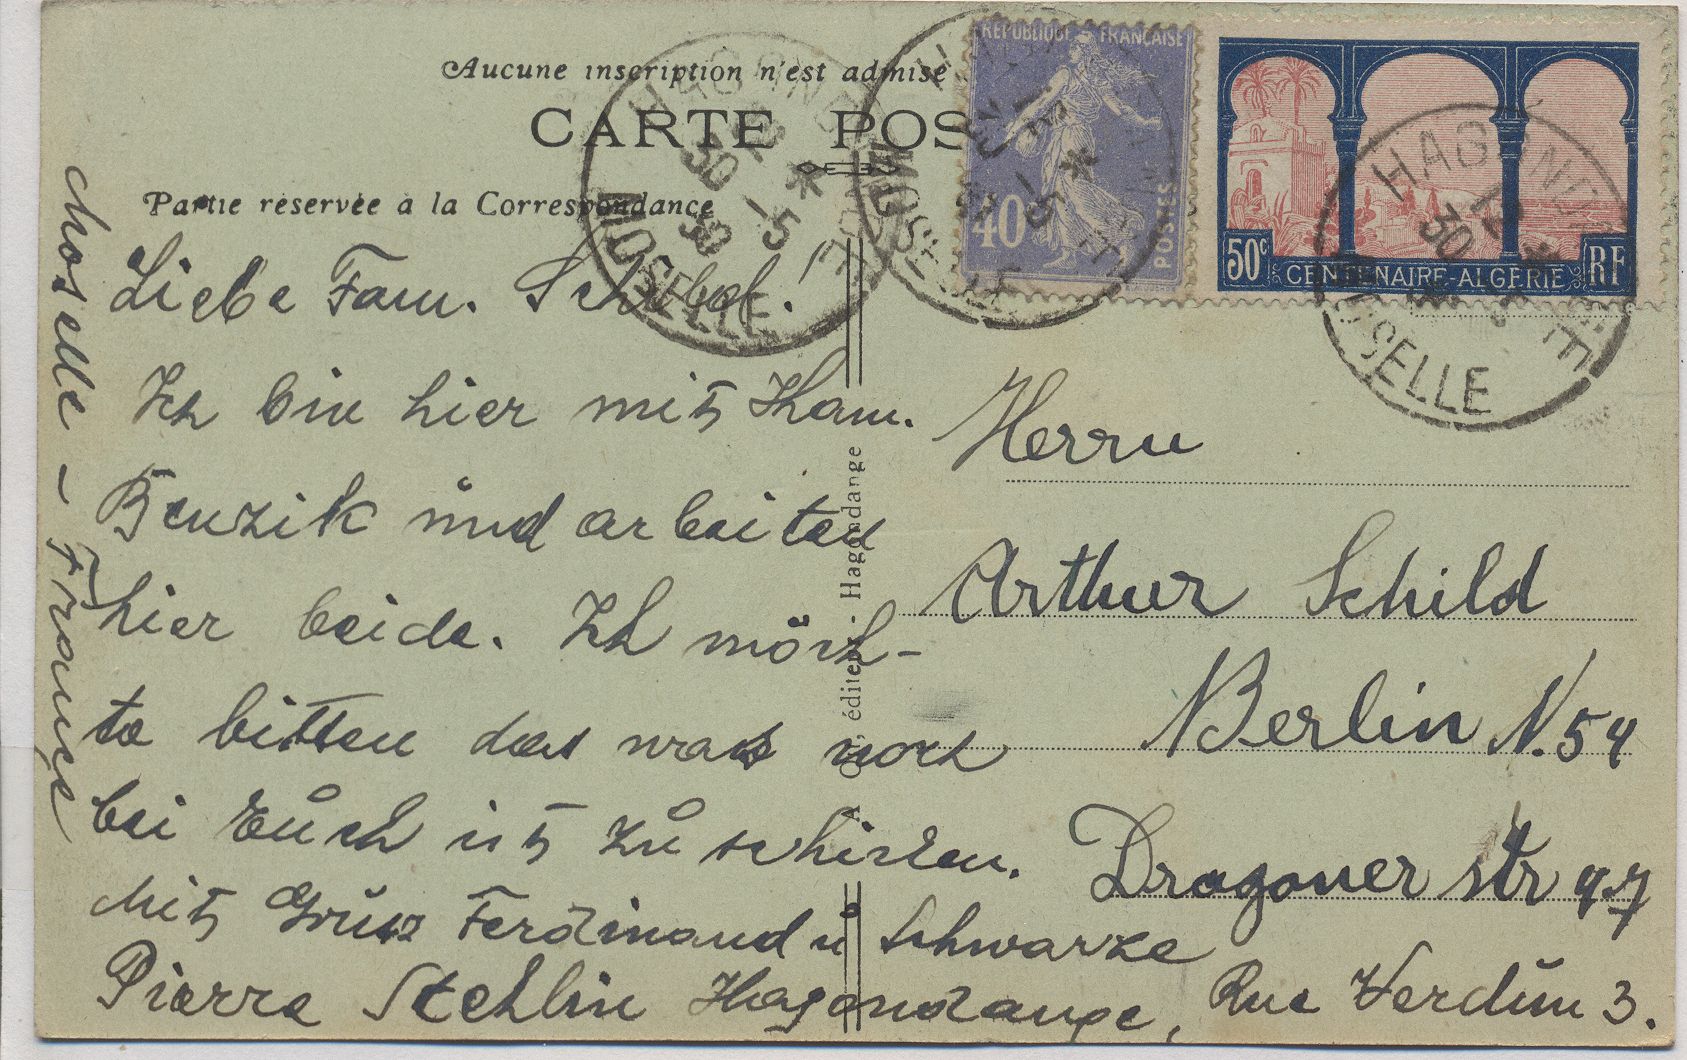 Aucune inscription n'est admise
CARTE POS
Partie réservée à la Correspondance
RÉPUBLIQUE FRANÇAISE
40c
POSTES
50c
CENTENAIRE-ALGÉRIE
RF
HAGONDANGE
MOSELLE
HAGONDANGE
MOSELLE
HAGONDANGE
MOSELLE
Liebe Fam. Schild!
Ich bin hier mit Ham.
Benzik und arbeiten
hier beide. Ich möch-
te bitten das was noch
bei Euch ist zu schicken.
Mit Grüsz Ferdinand u Schwarze
Pierre Stehlin Hagondange, Rue Verdun 3.
Moselle - France
éditeur - Hagondange
Herrn
Arthur Schild
Berlin N. 54
Dragoner str 47